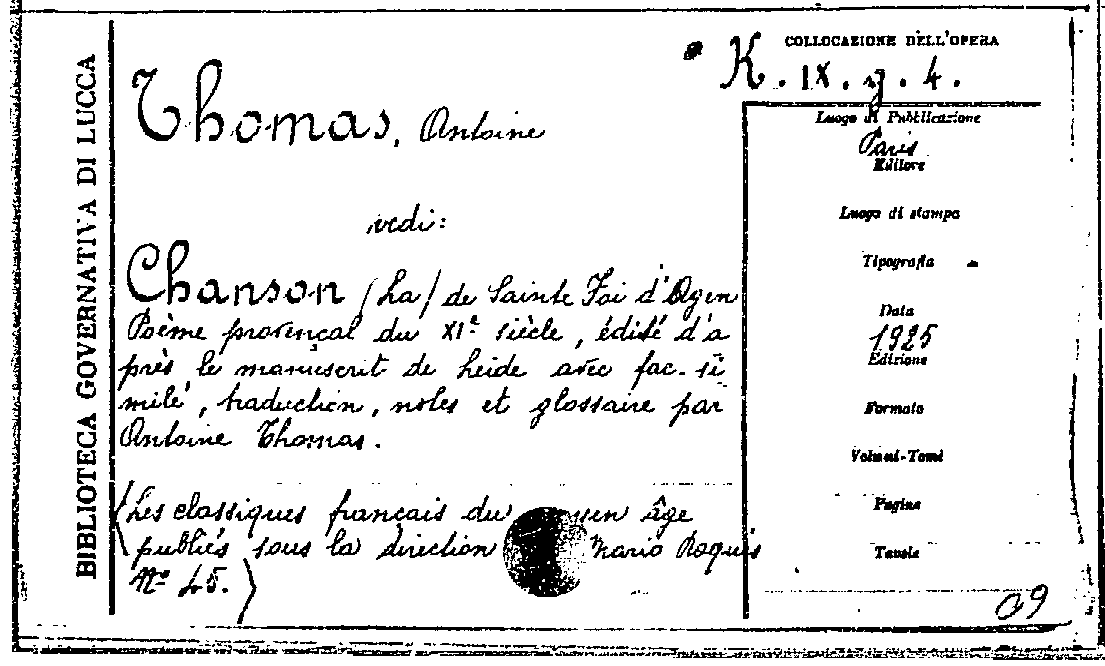 BIBLIOTECA GOVERNATIVA DI LUCCA
Thomas, Antoine
vedi:
Chanson (La) de Sainte Foi d'Agen
Poème provençal du XIe siècle, édité d'a
près le manuscrit de Leide avec fac-si
milé, traduction, notes et glossaire par
Antoine Thomas.
(Les classiques français du âge
publiés sous la direction Mario Roques
No 45.)
COLLOCAZIONE DELL'OPERA
K. IX. g. 4.
Luogo di Pubblicazione
Paris
Editore
Luogo di stampa
Tipografia
Data
1925
Edizione
Formato
Volumi-Tomi
Pagine
Tavole